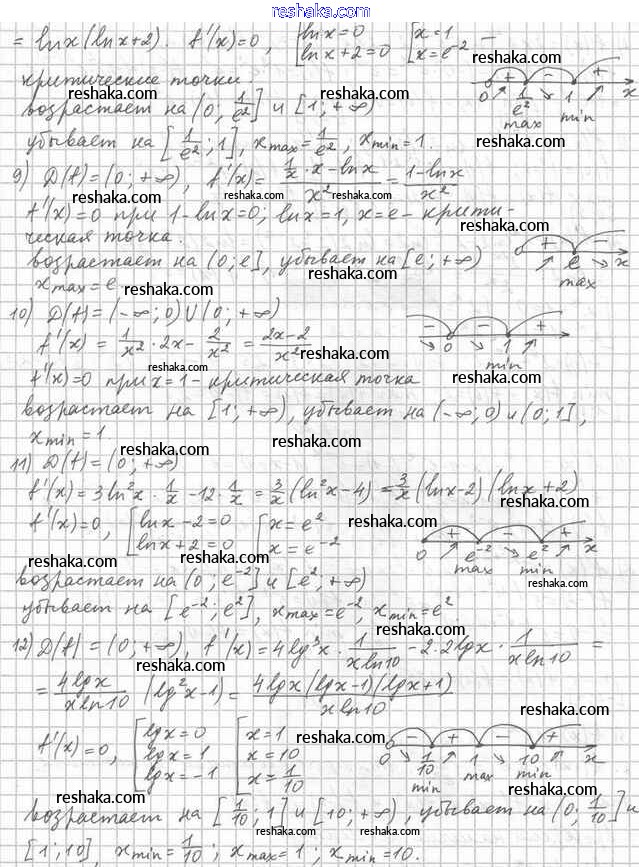 reshaka.com
= lnx(lnx+2). f'(x)=0, [lnx=0 lnx+2=0 [x=1 x=e⁻² –
критические точки.
возрастает на (0; 1/e²] и [1; +∞)
0 + 1/e² – 1 + x
max min
убывает на [1/e²; 1], xmax = 1/e², xmin = 1.
9) D(f)=(0; +∞), f'(x)= (1/x · x – lnx)/x² = (1–lnx)/x²
f'(x)=0 при 1–lnx=0; lnx=1, x=e – крити-
ческая точка.
возрастает на (0; e], убывает на [e; +∞)
+ – e x
max
xmax = e
10) D(f)=(-∞; 0) U (0; +∞)
f'(x) = 1/x² · 2x – 2/x² = (2x–2)/x²
– 0 – 1 +
min
f'(x)=0 при x=1 – критическая точка
возрастает на [1; +∞), убывает на (-∞; 0) и (0; 1],
xmin = 1
11) D(f)=(0; +∞)
f'(x)=3ln²x · 1/x – 12 · 1/x = 3/x (ln²x–4) = 3/x (lnx–2)(lnx+2)
f'(x)=0, [lnx–2=0 lnx+2=0 [x=e² x=e⁻²
0 + e⁻² – e² + x
max min
возрастает на (0; e⁻²] и [e²; +∞)
убывает на [e⁻²; e²], xmax=e⁻², xmin=e².
12) D(f)=(0; +∞), f'(x)=4lg³x · 1/(xln10) – 2·2lgx · 1/(xln10) =
= 4lgx/(xln10) (lg²x–1) = 4lgx(lgx–1)(lgx+1)/(xln10)
f'(x)=0, [lgx=0 lgx=1 lgx=-1 [x=1 x=10 x=1/10
0 – 1/10 + 1 – 10 + x
min max min
возрастает на [1/10; 1] и [10; +∞), убывает на (0; 1/10] и
[1; 10]. xmin=1/10; xmax=1; xmin=10.